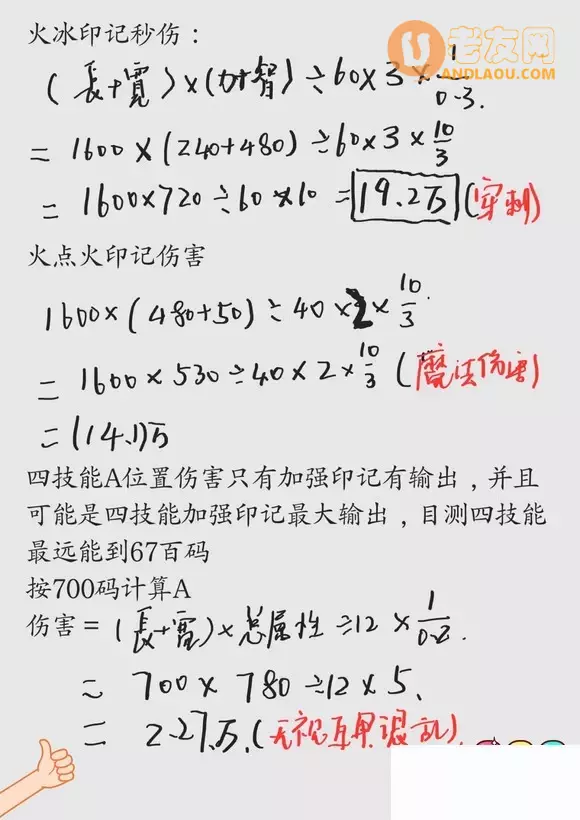 老友网
ANDLAOU.COM
火冰印记秒伤：
(長+寬)×(力+智)÷60×3×1/0.3.
=1600×(240+480)÷60×3×10/3
=1600×720÷60×10=19.2万(穿刺)
火点火印记伤害
1600×(480+50)÷40×2×10/3.
=1600×530÷40×2×10/3(魔法伤害)
=(14.1)万
四技能A位置伤害只有加强印记有输出，并且
可能是四技能加强印记最大输出，目测四技能
最远能到67百码
按700码计算A
伤害=(長+寬)×总属性÷12×1/0.2.
=700×780÷12×5.
=2.27万.(无视互甲混乱)